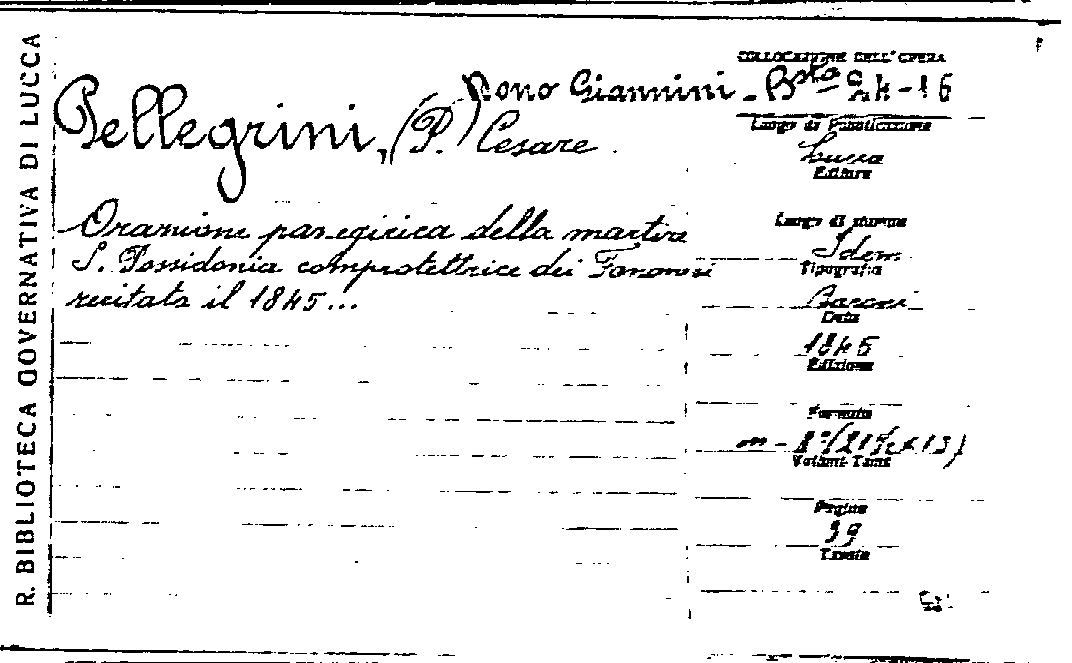 R. BIBLIOTECA GOVERNATIVA DI LUCCA
COLLOCAZIONE DELL'OPERA
Dono Giannini - Bsta 24-16
Pellegrini, (P.) Cesare.
Luogo di Pubblicazione
Lucca
Editore
Orazione panegirica della martire
S. Possidonia comprotettrice dei Fananesi
recitata il 1845...
Luogo di stampa
Idem
Tipografia
Baroni
Data
1845
Edizione
Formato
m - 8° (21½ x 13)
Volumi-Tomi
Pagine
39
Tavole